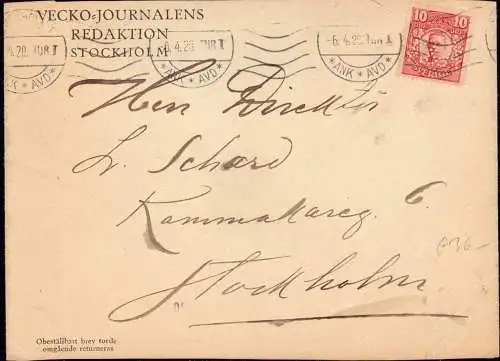 VECKO=JOURNALENS
REDAKTION
STOCKHOLM
-6.4.20. TUR 1
*ANK * AVD*
10 10
SVERIGE
Herr Direktör
Kammakareg. 6.
Stockholm
Obeställbart brev torde
omgående returneras